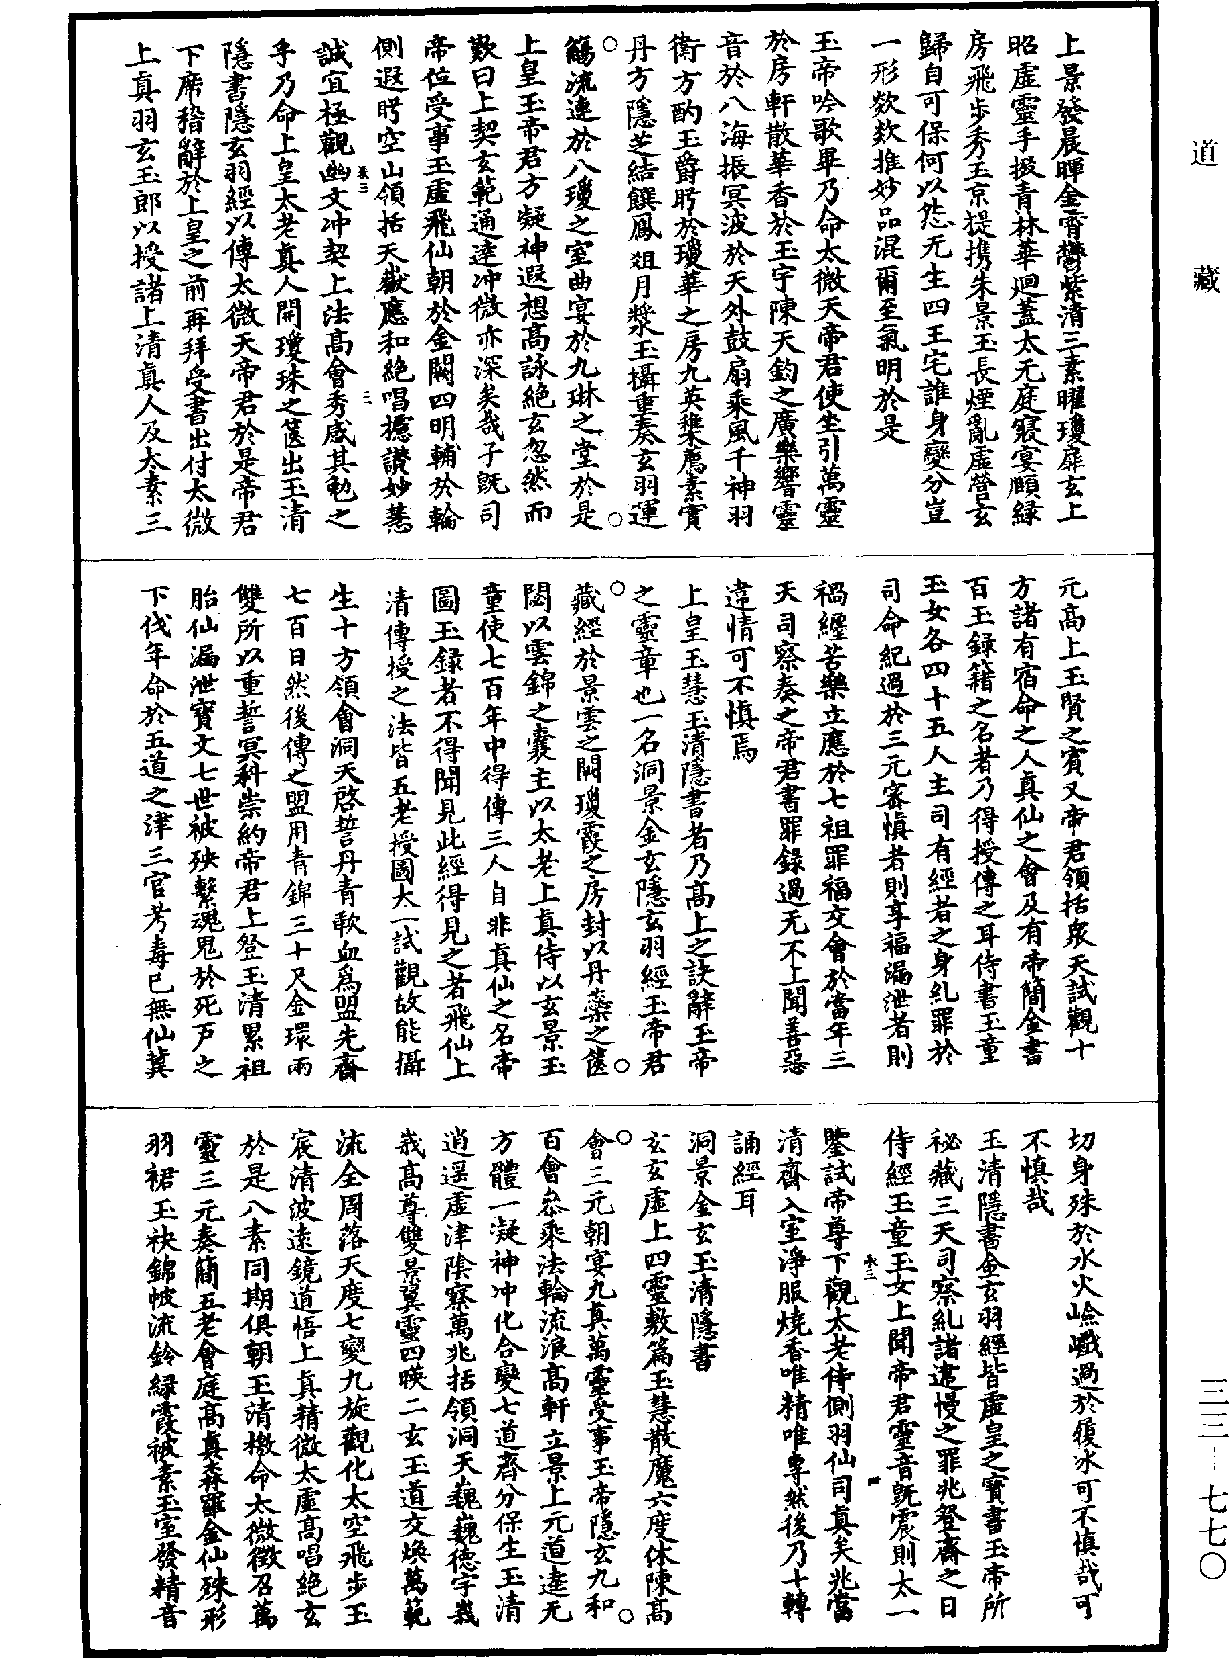 道藏
上景發晨暉金霄鬱紫清三素曜瓊扉玄上
昭虛靈手掇青林華迴蓋太无庭寢宴願緑
房飛步秀玉京提攜朱景玉長煙亂虛營玄
歸自可保何以怨无生四王宅誰身變分豈
一形欻欻推妙品混爾至氣明於是
玉帝吟歌畢乃命太微天帝君使坐引萬靈
於房軒散華香於玉宇陳天鈞之廣樂響靈
音於八海振冥波於天外鼓扇乘風千神羽
衛方酌玉爵眄於瓊華之房九英檠薦素實
丹方隱芝結饌鳳俎月漿玉攝重奏玄羽運
觴流連於八瓊之室曲宴於九琳之堂於是
上皇玉帝君方凝神遐想高詠絶玄忽然而
歎曰上契玄範通達冲微亦深矣哉子既司
帝位受事玉虛飛仙朝於金闕四明輔於輪
側遐眄空山領括天嶽應和絶唱攄讚妙慧
誠宜極觀幽文冲契上法高會秀感其勉之
乎乃命上皇太老真人開瓊珠之篋出玉清
隱書隱玄羽經以傳太微天帝君於是帝君
下席稽辭於上皇之前再拜受書出付太微
上真羽玄玉郎以授諸上清真人及太素三
元高上玉賢之賓又帝君領括衆天試觀十
方諸有宿命之人真仙之會及有帝簡金書
百玉錄籍之名者乃得授傳之耳侍書玉童
玉女各四十五人主司有經者之身糺罪於
司命紀過於三元審慎者則享福漏泄者則
禍纏苦樂立應於七祖罪福交會於當年三
天司察奏之帝君書罪錄過无不上聞善惡
違情可不慎焉
上皇玉慧玉清隱書者乃高上之訣辭玉帝
之靈章也一名洞景金玄隱玄羽經玉帝君
藏經於景雲之闕瓊霞之房封以丹蘂之篋
閟以雲錦之囊主以太老上真侍以玄景玉
童使七百年中得傳三人自非真仙之名帝
圖玉錄者不得聞見此經得見之者飛仙上
清傳授之法皆五老授圖太一試觀故能攝
生十方領會洞天啓誓丹青歃血爲盟先齋
七百日然後傳之盟用青錦三十尺金環兩
雙所以重誓冥科崇約帝君上登玉清累祖
胎仙漏泄寶文七世被殃繫魂鬼於死戶之
下伐年命於五道之津三官考毒已無仙冀
切身殊於水火嶮巇過於履冰可不慎哉可
不慎哉
玉清隱書金玄羽經皆虛皇之寶書玉帝所
祕藏三天司察糺諸遺慢之罪兆登齋之日
侍經玉童玉女上聞帝君靈音既震則太一
鑒試帝尊下觀太老侍側羽仙司真矣兆當
清齋入室淨服燒香唯精唯專然後乃十轉
誦經耳
洞景金玄玉清隱書
玄玄虛上四靈敷篇玉慧散魔六度体陳高
會三元朝宴九真萬靈受事玉帝隱玄九和
百會叅乘法輪流浪高軒立景上元道達无
方體一凝神冲化合變七道齊分保生玉清
逍遥虛津陰察萬兆括領洞天巍巍德宇峩
峩高尊雙景翼靈四暎二玄玉道交煥萬範
流全周落天度七變九旋觀化太空飛步玉
宸清波遠鏡道悟上真精微太虛高唱絶玄
於是八素同期俱朝玉清檄命太微徴召萬
靈三元奏簡五老會庭高真森羅金仙殊形
羽裙玉袂錦帔流鈴緑霞被素玉室發精音
三三－七七〇